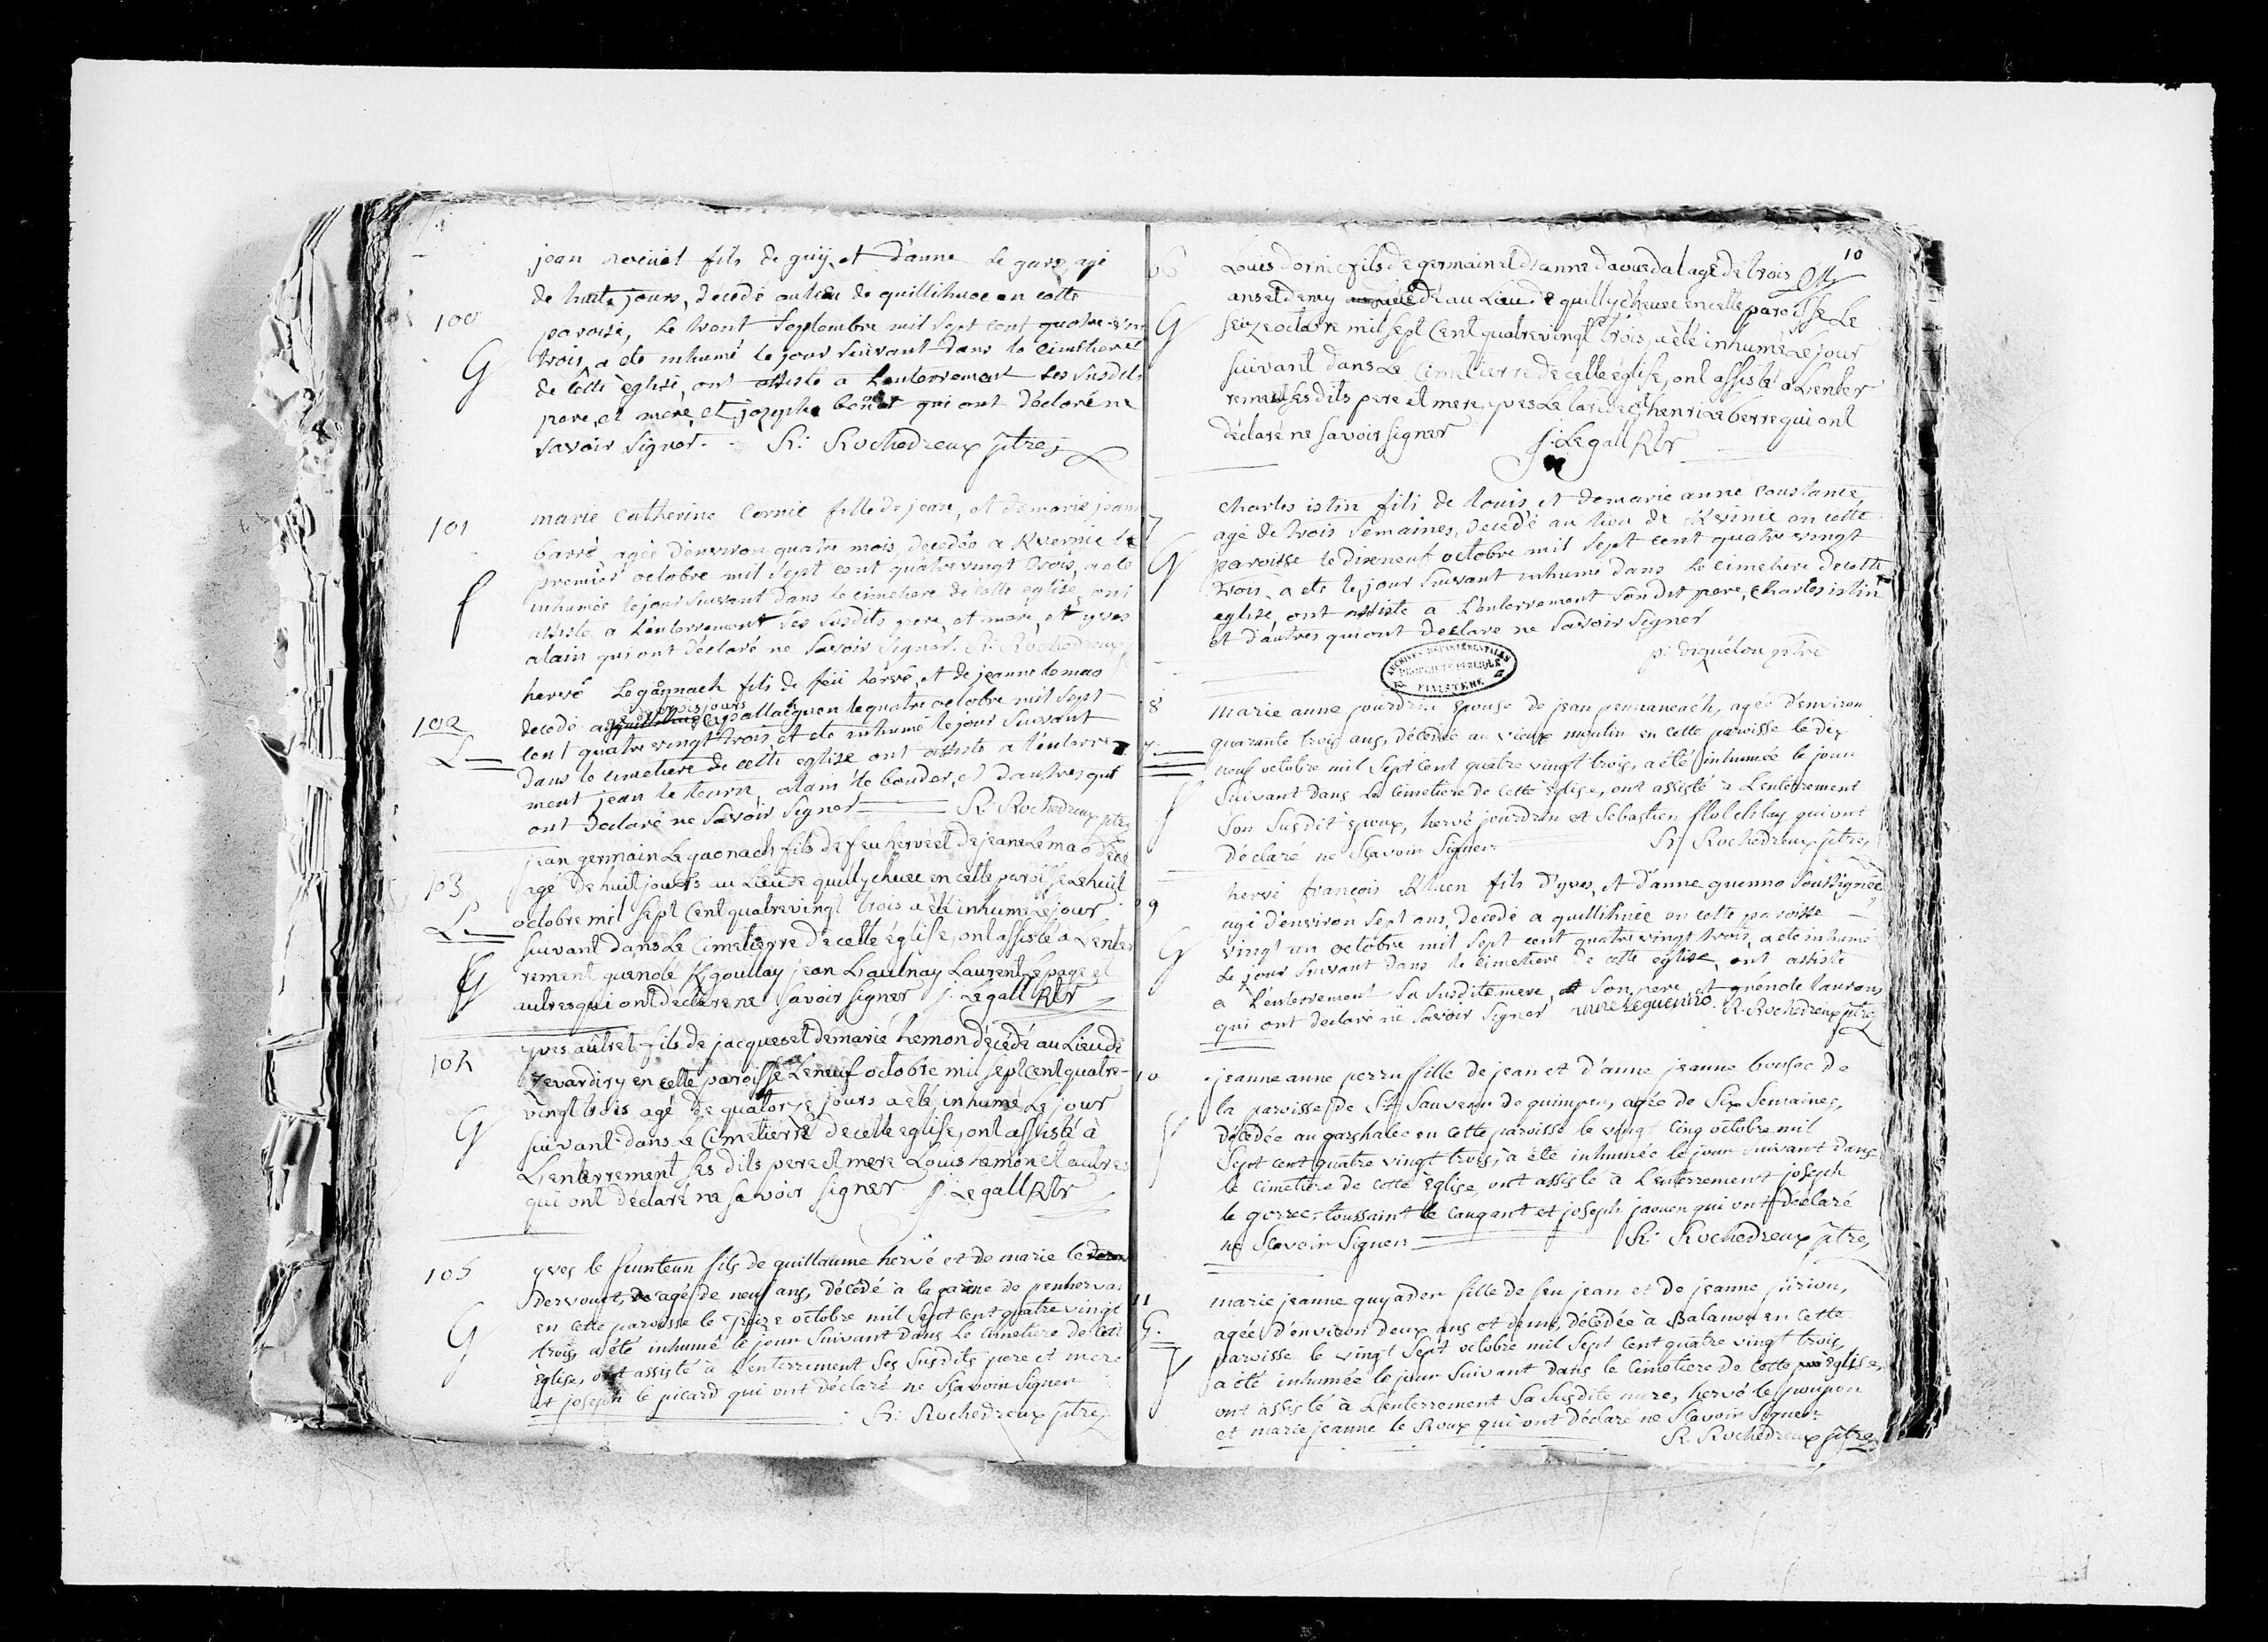 jean fils de guy, et d'anne Le gars, agé
de huit jours, décedé au lieu de quillihuec en cette
100
paroisse, le trent septembre mil sept cent quatre vin
G
trois, a ete inhumé le jour suivant dans le cimetiere
de cette eglise, ont assisté a l'enterrement ses susdits
pere, et mere, et jozeph qui ont déclaré ne
savoir signer. R: Rochedreux ptre
101
marie catherine cornic fille de jean, et de marie jean
barré, agée d'environ quatre mois, decedée a Kvernic le
premier octobre mil sept cent quatre vingt trois, a ete
f
inhumée le jour suivant dans le cimetiere de cette eglise, ont
assisté a l'enterrement ses susdits pere, et mere, et yves
alain qui ont déclaré ne savoir signer. R: Rochedreux
hervé Le gaonnach fils de feu hervé, et de jeanne le mao
trois jours
102
decedé le quatre octobre mil sept
L
cent quatre vingt trois et ete inhumé le jour suivant
dans le cimetiere de cette eglise ont assisté a l'enterre
ment jean le teurn, alain le bouder, et d'autres qui
ont declaré ne savoir signer R: Rochedreux ptre
jean germain Le gaonach fils de feu hervé et de jeane Le mao décé
103
agé de huit jours au Lieu de quillychuec en cette paroisse Le huit
L
octobre mil sept cent quatre vingt trois a été inhumé Le jour
suivant dans Le cimetierre de cette église, ont assisté a L'enter
G
rement guenolé Kgoullay jean L'aulnay Laurent Le page et
autres qui ont declaré ne savoir signer j: Le gall Rtr
104
yves autret fils de jacques et de marie hemon décédé au Lieu de
Levardiry en cette paroisse Le neuf octobre mil sept cent quatre-
vingt trois agé de quatorze jours a été inhumé Le jour
G
suivant dans Le cimetierre de cette eglise, ont assisté à
L'enterrement ses dits pere et mere Louis hemon et autres
qui ont déclaré ne savoir signer j: Le gall Rtr
105
yves le feunteun fils de guillaume hervé et de marie le
Dervouet, agé de neuf ans, décédé à la garine de penherva
en cette paroisse le treize octobre mil sept cent quatre vingt
G
trois, a été inhumé le jour suivant dans le cimetiere de cett
Église, ont assisté à l'enterrement ses susdits pere et mere
et joseph le picard qui ont déclaré ne sçavoir signer
R: Rochedreux ptre
10
06
Louis dornic fils de germain et d'anne daouedal agé de trois
ans et demy décédé au Lieu de quillychuec en cette paroisse Le
G
seize octobre mil sept cent quatre vingt trois, a été inhumé Le jour
suivant dans Le cimetierre de cette église, ont assisté a L'enter
rement ses dits pere et mere, yves Le et henri Le berre qui ont
déclaré ne savoir signer j: Le gall Rtr
charles istin fils de louis et de marie anne constance
7
agé de trois semaines, decedé au lieu de Kvinic en cette
G
paroisse le dixneuf octobre mil sept cent quatre vingt
trois, a ete le jour suivant inhumé dans le cimetiere de cette
eglise, ont assisté a l'enterrement son dit pere, charles istin
et d'autres qui ont declaré ne savoir signer
p: ptre
ARCHIVES DÉPARTEMENTALES
PROPRIÉTÉ PUBLIQUE
FINISTÈRE
8
marie anne jourdrin épouse de jean pennaneach, agée d'environ
quarante trois ans, décédée au vieux moulin en cette paroisse le dix
neuf octobre mil sept cent quatre vingt trois, a été inhumée le jour
f
suivant dans le cimetiere de cette église, ont assisté à l'enterrement
son susdit époux, hervé jourdren et sebastien qui ont
déclaré ne sçavoir signer R: Rochedreux ptre
9
hervé françois Kluen fils d'yves, et d'anne guenno soussignée
agé d'environ sept ans, decedé a quillihuec en cette paroisse
G
vingt un octobre mil sept cent quatre vingt trois, a ete inhumé
le jour suivant dans le cimetiere de cette eglise, ont assisté
a l'enterrement sa susdite mere, et son pere, et guenole laurans
qui ont declaré ne savoir signer anne le guenno. R: Rochedreux ptre
10
jeanne anne perru fille de jean et d'anne jeanne boussec de
la paroisse de St Sauveur de quimper, agée de six semaines,
f
décédée au en cette paroisse le vingt cinq octobre mil
sept cent quatre vingt trois, a été inhumée le jour suivant dans
le cimetiere de cette église, ont assisté à l'enterrement joseph
le gorrec, toussaint le caugant et joseph jaouen qui ont déclaré
ne sçavoir signer R: Rochedreux ptre
11
marie jeanne quyader fille de feu jean et de jeanne pirion,
G.
agée d'environ deux ans et demi, décédée à Balanou en cette
paroisse le vingt sept octobre mil sept cent quatre vingt trois,
f
a été inhumée le jour suivant dans le cimetiere de cette église,
ont assisté à l'enterrement sa susdite mere, hervé le poupon
et marie jeanne le Roux qui ont déclaré ne sçavoir signer
R: Rochedreux ptre